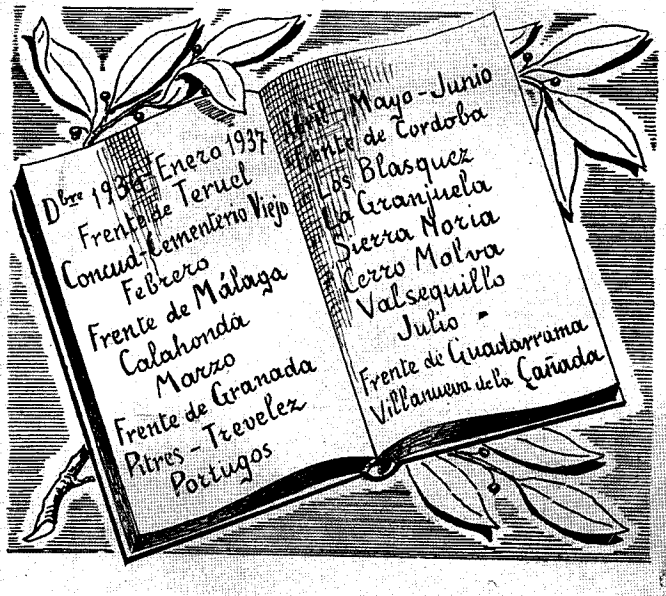 Dbre 1936 - Enero 1937
Frente de Teruel
Concud-Cementerio Viejo
Febrero
Frente de Málaga
Calahonda
Marzo
Frente de Granada
Pitres - Trevelez
Portugos
Abril - Mayo - Junio
Frente de Cordoba
Los Blasquez
La Granjuela
Sierra Noria
Cerro Molva
Valsequillo
Julio -
Frente de Guadarrama
Villanueva de la Cañada